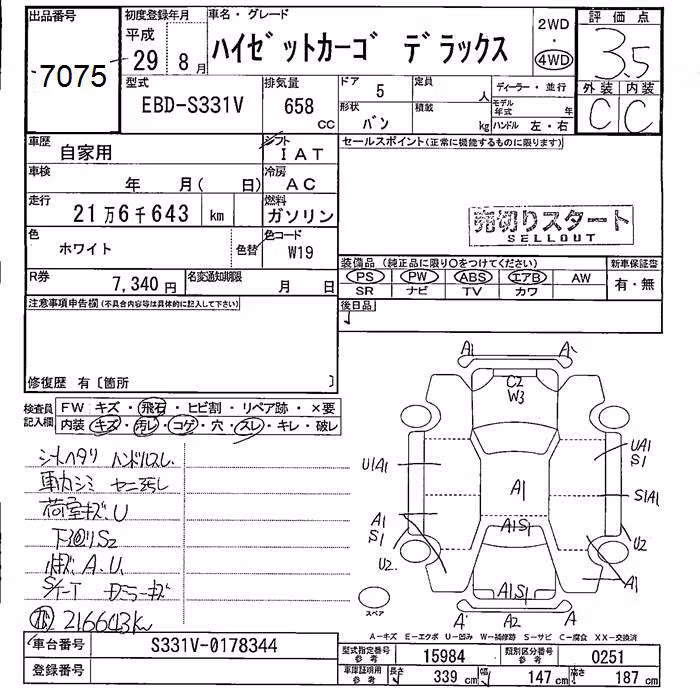 出品番号
7075
初度登録年月
平成
29 8月
車名・グレード
ハイゼットカーゴ デラックス
2WD
・
4WD
評価点
3.5
外装 内装
C C
型式
EBD-S331V
排気量
658
cc
ドア 5
形状
バン
定員
人
積載
kg
ディーラー・並行
モデル年式 年
ハンドル 左・右
車歴
自家用
シフト
IAT
車検
年 月( 日)
冷房
AC
走行
21万6千643 km
燃料
ガソリン
色
ホワイト
色替
色コード
W19
R券
7,340円
名変通知期限
月 日
セールスポイント(正常に機能するものに限ります)
売切りスタート
SELLOUT
装備品(純正品に限り○をつけてください)
PS PW ABS エアB AW
SR ナビ TV カワ
新車保証書
有・無
後日品
注意事項申告欄(不具合内容等は具体的に記入して下さい)
修復歴 有〔箇所 〕
検査員記入欄
FW キズ・飛石・ヒビ割・リペア跡・×要
内装・キズ・汚レ・コゲ・穴・スレ・キレ・破レ
シートヘタリ ハンドルスレ
荷室キズ.U
下廻りS2
A.U.
216643K
車台番号
S331V-0178344
登録番号
A1
A
C2
W3
U1A1
A1
S1
U2
A1
A1S1
A1S1
UA1
S1
S1A1
U2
A1
A
A2
A
スペア
A-キズ E-エクボ U-凹み W-補修跡 S-サビ C-腐食 XX-交換済
型式指定番号
参考
15984
類別区分番号
参考
0251
車庫証明用
参考
長さ
339 cm
幅
147 cm
高さ
187 cm